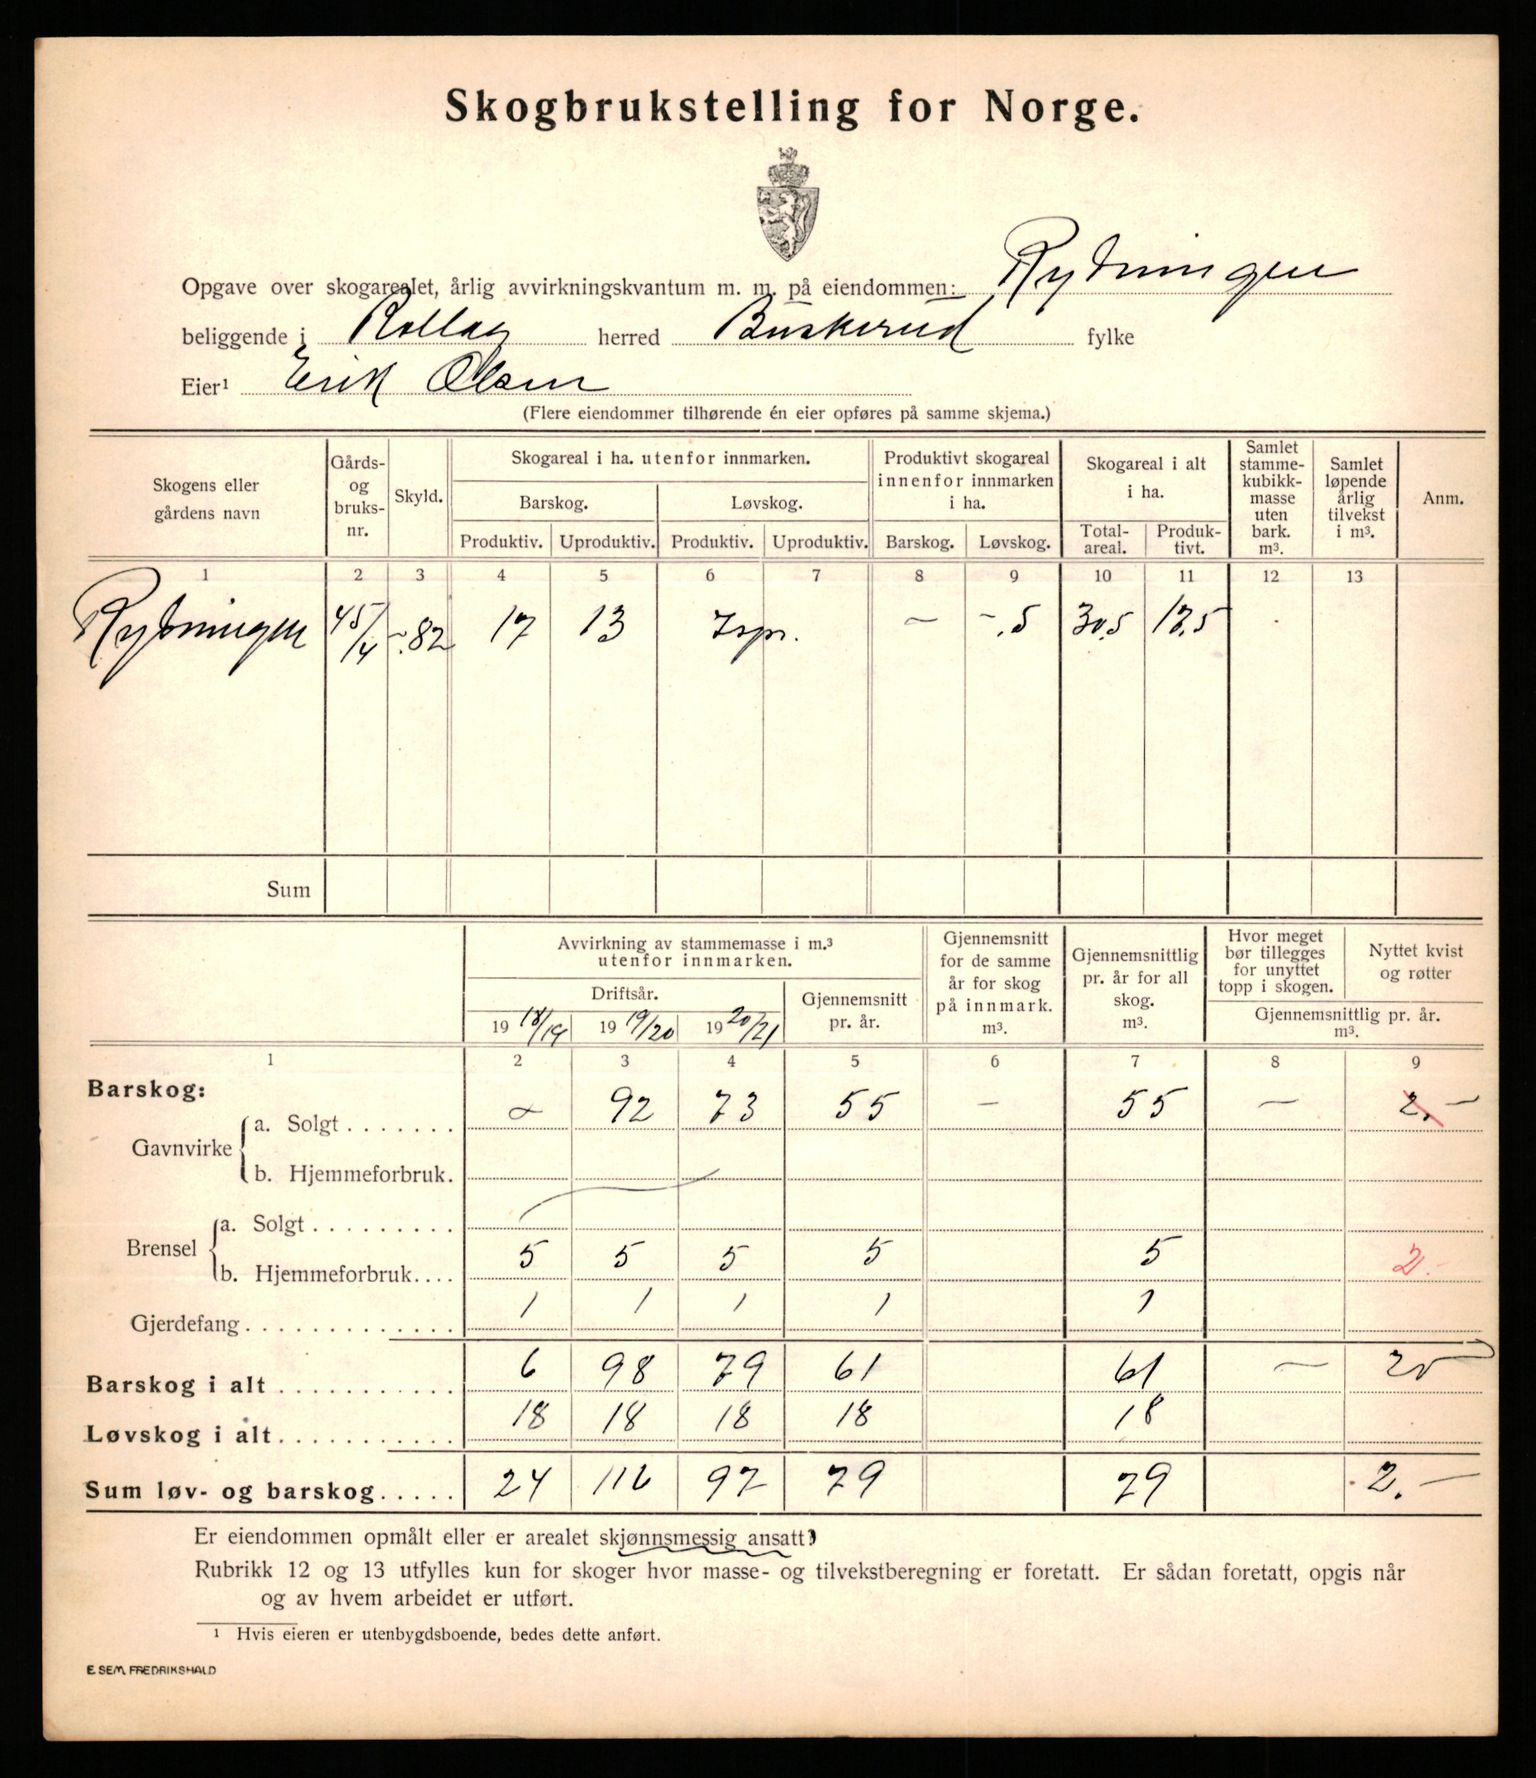 Skogbrukstelling for Norge.
Opgave over skogarealet, årlig avvirkningskvantum m. m. på eiendommen: Rydningen
beliggende i Rollag herred Buskerud fylke
Eier¹ Erik Olsen
(Flere eiendommer tilhørende én eier opføres på samme skjema.)
Skogens eller gårdens navn
Gårds- og bruks- nr.
Skyld.
Skogareal i ha. utenfor innmarken.
Barskog. Løvskog.
Produktiv. Uproduktiv. Produktiv. Uproduktiv.
Produktivt skogareal innenfor innmarken i ha.
Barskog. Løvskog.
Skogareal i alt i ha.
Total- areal. Produk- tivt.
Samlet stamme- kubikk- masse uten bark. m³.
Samlet løpende årlig tilvekst i m³.
Anm.
1 2 3 4 5 6 7 8 9 10 11 12 13
Rydningen 45/4 -.82 17 13 Ispr. — -.5 30,5 17,5
Sum
Avvirkning av stammemasse i m.³ utenfor innmarken.
Driftsår.
1918/19 1919/20 1920/21
Gjennemsnitt pr. år.
Gjennemsnitt for de samme år for skog på innmark. m³.
Gjennemsnittlig pr. år for all skog. m³.
Hvor meget bør tillegges for unyttet topp i skogen.
Nyttet kvist og røtter
Gjennemsnittlig pr. år. m³.
1 2 3 4 5 6 7 8 9
Barskog:
Gavnvirke
a. Solgt . . . . . . . — 92 73 55 — 55 — 2.—
b. Hjemmeforbruk.
Brensel
a. Solgt . . . . . . . . .
b. Hjemmeforbruk. . . . 5 5 5 5 5 2.-
Gjerdefang . . . . . . . . . . . . . 1 1 1 1 1
Barskog i alt . . . . . . . . . . . 6 98 79 61 61 —
Løvskog i alt . . . . . . . . . . . 18 18 18 18 18
Sum løv- og barskog . . . . . 24 116 97 79 79 2.—
Er eiendommen opmålt eller er arealet skjønnsmessig ansatt?
Rubrikk 12 og 13 utfylles kun for skoger hvor masse- og tilvekstberegning er foretatt. Er sådan foretatt, opgis når
og av hvem arbeidet er utført.
¹ Hvis eieren er utenbygdsboende, bedes dette anført.
E. SEM, FREDRIKSHALD